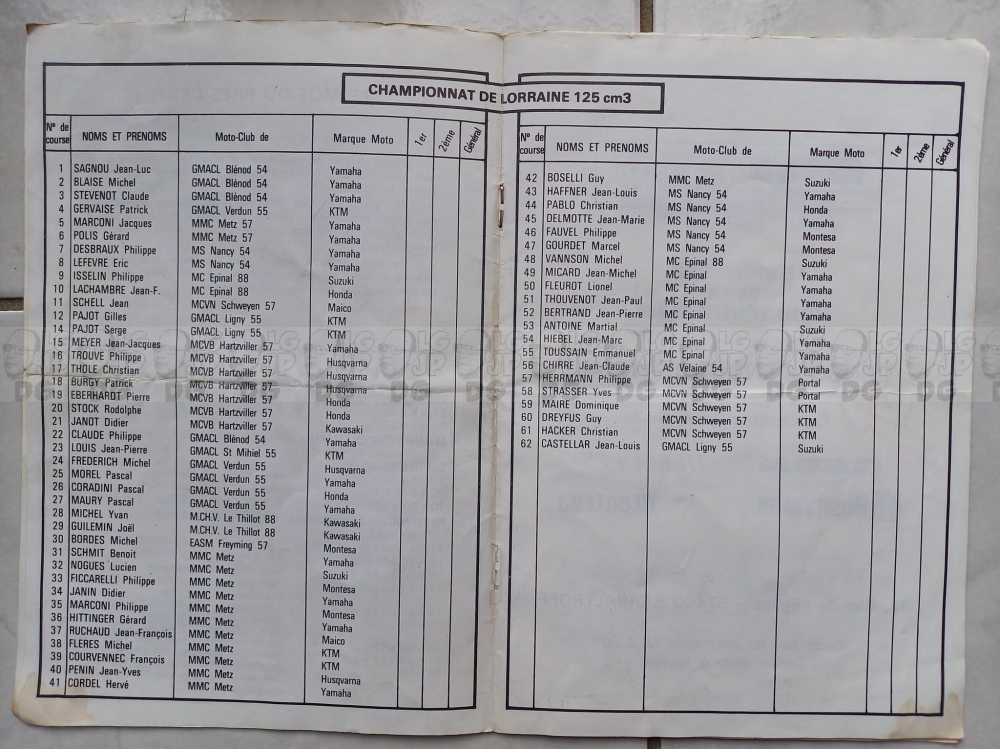 CHAMPIONNAT DE LORRAINE 125 cm3
N° de course NOMS ET PRENOMS Moto-Club de Marque Moto 1er 2ème Général
1 SAGNOU Jean-Luc GMACL Blénod 54 Yamaha
2 BLAISE Michel GMACL Blénod 54 Yamaha
3 STEVENOT Claude GMACL Blénod 54 Yamaha
4 GERVAISE Patrick GMACL Verdun 55 KTM
5 MARCONI Jacques MMC Metz 57 Yamaha
6 POLIS Gérard MMC Metz 57 Yamaha
7 DESBRAUX Philippe MS Nancy 54 Yamaha
8 LEFEVRE Eric MS Nancy 54 Yamaha
9 ISSELIN Philippe MC Epinal 88 Suzuki
10 LACHAMBRE Jean-F. MC Epinal 88 Honda
11 SCHELL Jean MCVN Schweyen 57 Maico
12 PAJOT Gilles GMACL Ligny 55 KTM
14 PAJOT Serge GMACL Ligny 55 KTM
15 MEYER Jean-Jacques MCVB Hartzviller 57 Yamaha
16 TROUVE Philippe MCVB Hartzviller 57 Husqvarna
17 THOLE Christian MCVB Hartzviller 57 Husqvarna
18 BURGY Patrick MCVB Hartzviller 57 Husqvarna
19 EBERHARDT Pierre MCVB Hartzviller 57 Honda
20 STOCK Rodolphe MCVB Hartzviller 57 Honda
21 JANOT Didier MCVB Hartzviller 57 Kawasaki
22 CLAUDE Philippe GMACL Blénod 54 Yamaha
23 LOUIS Jean-Pierre GMACL St Mihiel 55 KTM
24 FREDERICH Michel GMACL Verdun 55 Husqvarna
25 MOREL Pascal GMACL Verdun 55 Yamaha
26 CORADINI Pascal GMACL Verdun 55 Honda
27 MAURY Pascal GMACL Verdun 55 Yamaha
28 MICHEL Yvan M.CH.V. Le Thillot 88 Kawasaki
29 GUILEMIN Joël M.CH.V. Le Thillot 88 Kawasaki
30 BORDES Michel EASM Freyming 57 Montesa
31 SCHMIT Benoit MMC Metz Yamaha
32 NOGUES Lucien MMC Metz Suzuki
33 FICCARELLI Philippe MMC Metz Montesa
34 JANIN Didier MMC Metz Yamaha
35 MARCONI Philippe MMC Metz Montesa
36 HITTINGER Gérard MMC Metz Yamaha
37 RUCHAUD Jean-François MMC Metz Maico
38 FLERES Michel MMC Metz KTM
39 COURVENNEC François MMC Metz KTM
40 PENIN Jean-Yves MMC Metz Husqvarna
41 CORDEL Hervé MMC Metz Yamaha
N° de course NOMS ET PRENOMS Moto-Club de Marque Moto 1er 2ème Général
42 BOSELLI Guy MMC Metz Suzuki
43 HAFFNER Jean-Louis MS Nancy 54 Yamaha
44 PABLO Christian MS Nancy 54 Honda
45 DELMOTTE Jean-Marie MS Nancy 54 Yamaha
46 FAUVEL Philippe MS Nancy 54 Montesa
47 GOURDET Marcel MS Nancy 54 Montesa
48 VANNSON Michel MC Epinal 88 Suzuki
49 MICARD Jean-Michel MC Epinal Yamaha
50 FLEUROT Lionel MC Epinal Yamaha
51 THOUVENOT Jean-Paul MC Epinal Yamaha
52 BERTRAND Jean-Pierre MC Epinal Yamaha
53 ANTOINE Martial MC Epinal Suzuki
54 HIEBEL Jean-Marc MC Epinal Yamaha
55 TOUSSAIN Emmanuel MC Epinal Yamaha
56 CHIRRE Jean-Claude AS Velaine 54 Yamaha
57 HERRMANN Philippe MCVN Schweyen 57 Portal
58 STRASSER Yves MCVN Schweyen 57 Portal
59 MAIRE Dominique MCVN Schweyen 57 KTM
60 DREYFUS Guy MCVN Schweyen 57 KTM
61 HACKER Christian MCVN Schweyen 57 KTM
62 CASTELLAR Jean-Louis GMACL Ligny 55 Suzuki